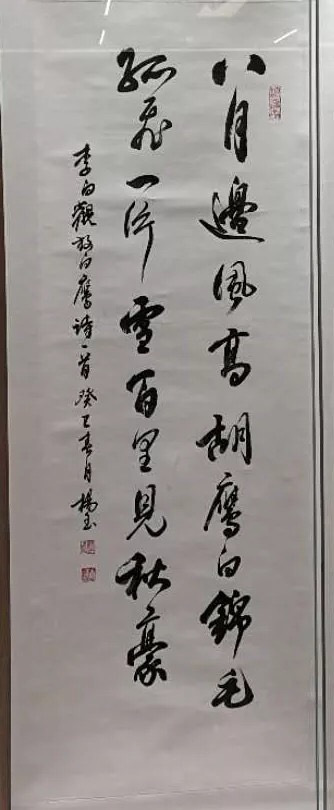 八月邊風高胡鷹白錦毛
孤飛一片雪百里見秋豪
李白觀放白鷹詩一首癸巳春月楊玉